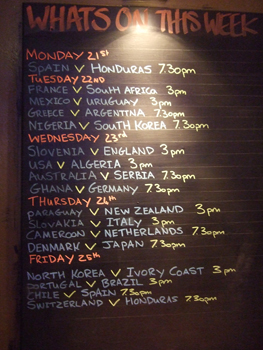 WHATS ON THIS WEEK
MONDAY 21st
SPAIN V HONDURAS 7.30pm
TUESDAY 22nd
FRANCE V SOUTH AFRICA 3pm
MEXICO V URUGUAY 3pm
GREECE V ARGENTINA 7.30pm
NIGERIA V SOUTH KOREA 7.30pm
WEDNESDAY 23rd
SLOVENIA V ENGLAND 3pm
USA V ALGERIA 3pm
AUSTRALIA V SERBIA 7.30pm
GHANA V GERMANY 7.30pm
THURSDAY 24th
PARAGUAY V NEW ZEALAND 3pm
SLOVAKIA V ITALY 3pm
CAMEROON V NETHERLANDS 7.30pm
DENMARK V JAPAN 7.30pm
FRIDAY 25th
NORTH KOREA V IVORY COAST 3pm
PORTUGAL V BRAZIL 3pm
CHILE V SPAIN 7.30pm
SWITZERLAND V HONDURAS 7.30pm